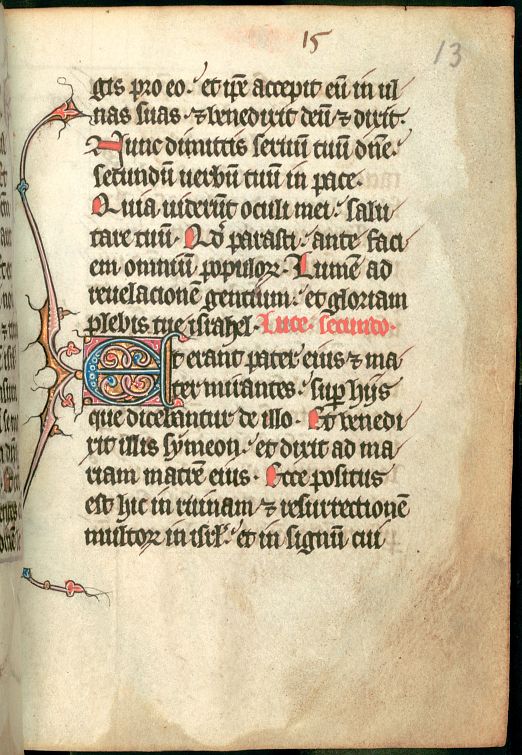 15
13
gis pro eo. et ip̄e accepit eū in ul
nas suas. ⁊ benedixit deū ⁊ dixit.
Nunc dimittis seruū tuū dn̄e.
secundū uerbū tuū in pace.
Quia uider̄t oculi mei. salu
tare tuū. Qd̓ parasti. ante faci
em omniū populoꝝ. Lumē ad
reuelacionē gentium. et gloriam
plebis tue israhel. Luce. secundo.
Et erant pater eius ⁊ ma
ter mirantes. sup̱ hiis
que dicebantur de illo. Et benedi
xit illis symeon. et dixit ad ma
riam matrē eius. Ecce positus
est hic in ruinam ⁊ resurrectionē
multoꝝ in isrl̓. et in signū cui